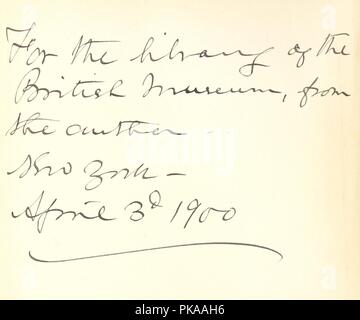 For the library of the
British Museum, from
the author
New York –
April 3d 1900
alamy
Image ID: PKAAH6
www.alamy.com